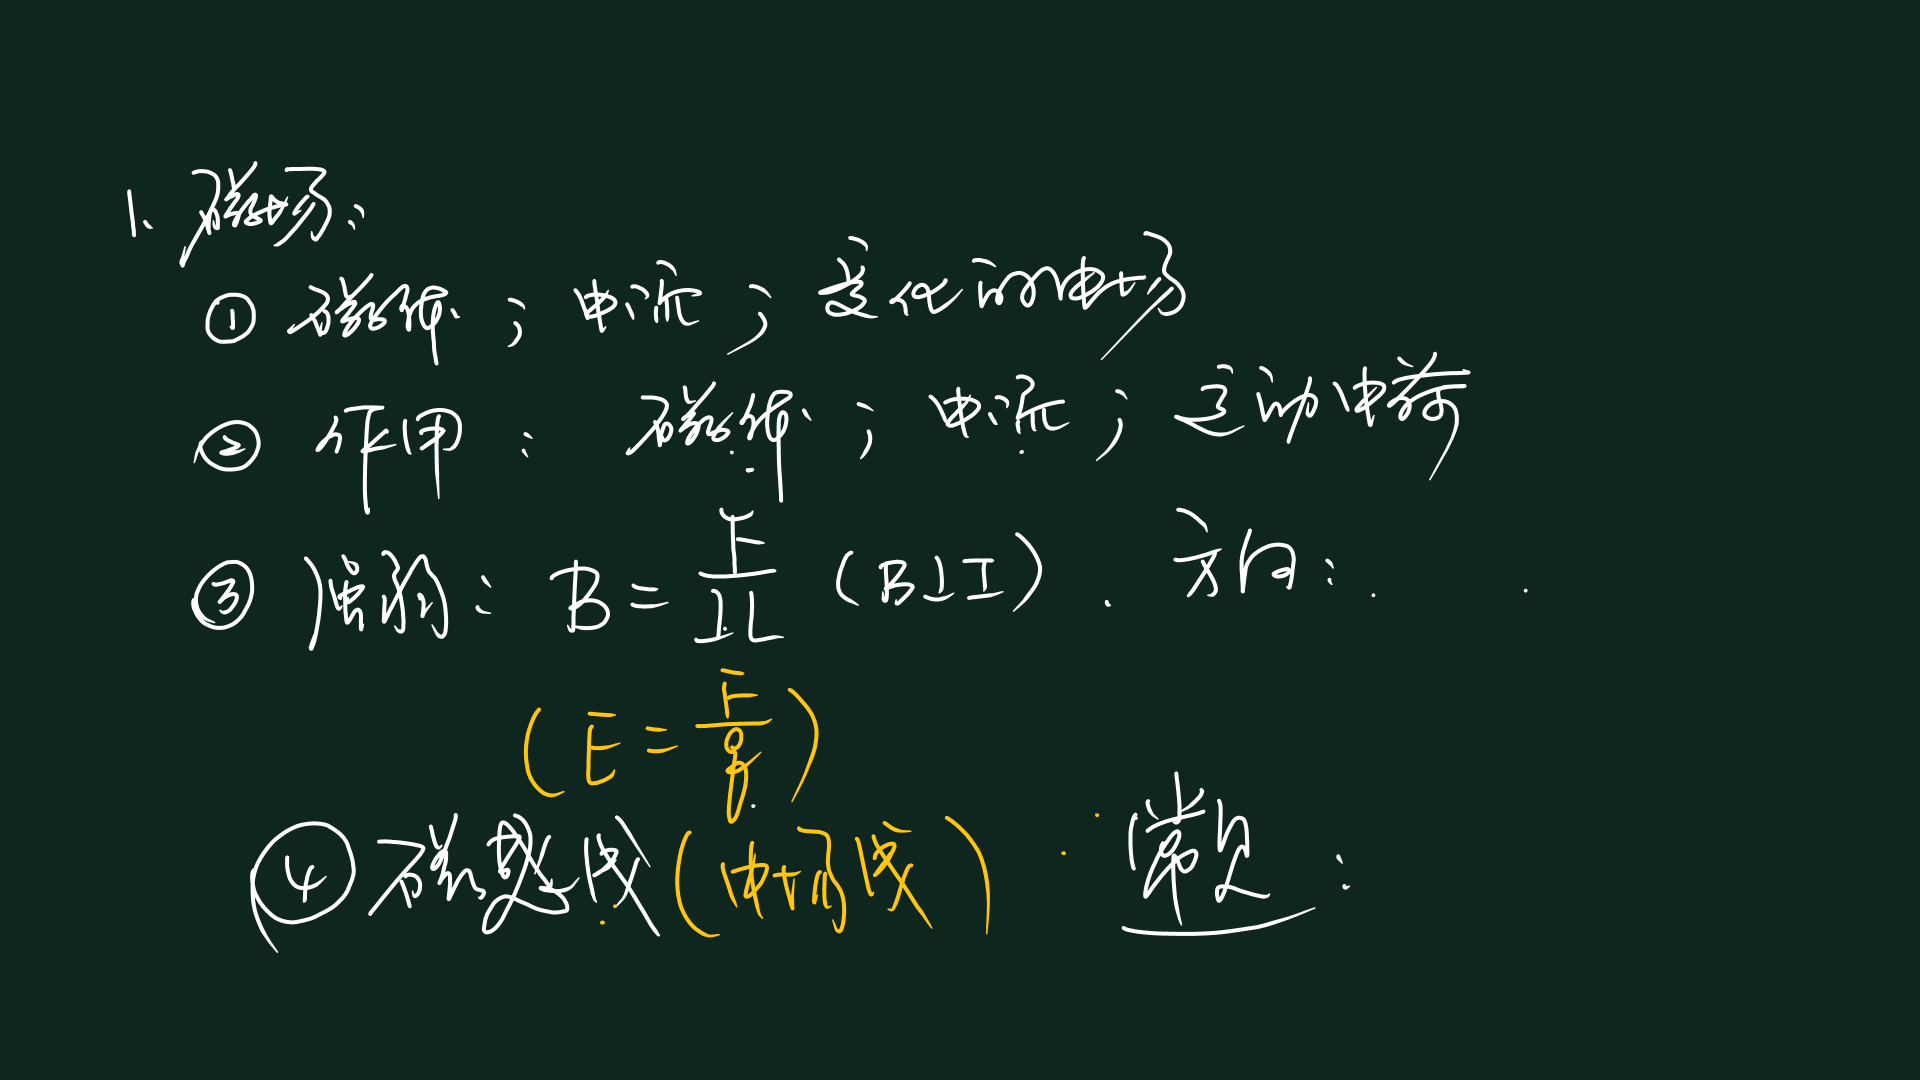 1. 磁场:
① 磁体 ; 电流 ; 变化的电场
② 作用 : 磁体 ; 电流 ; 运动电荷
③ 强弱: B = F/IL (B⊥I) . 方向:
(E = F/q)
④ 磁感线 (电场线) 常见 :